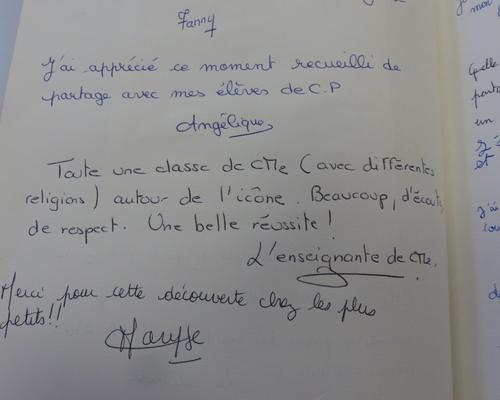 Fanny
J'ai apprécié ce moment recueilli de
partage avec mes élèves de C.P
Angélique
Toute une classe de CM2 (avec différentes
religions) autour de l'icône. Beaucoup, d'écoute,
de respect. Une belle réussite!
L'enseignante de CM2.
Merci pour cette découverte chez les plus
petits!!
Maryse
Quelle
un
et